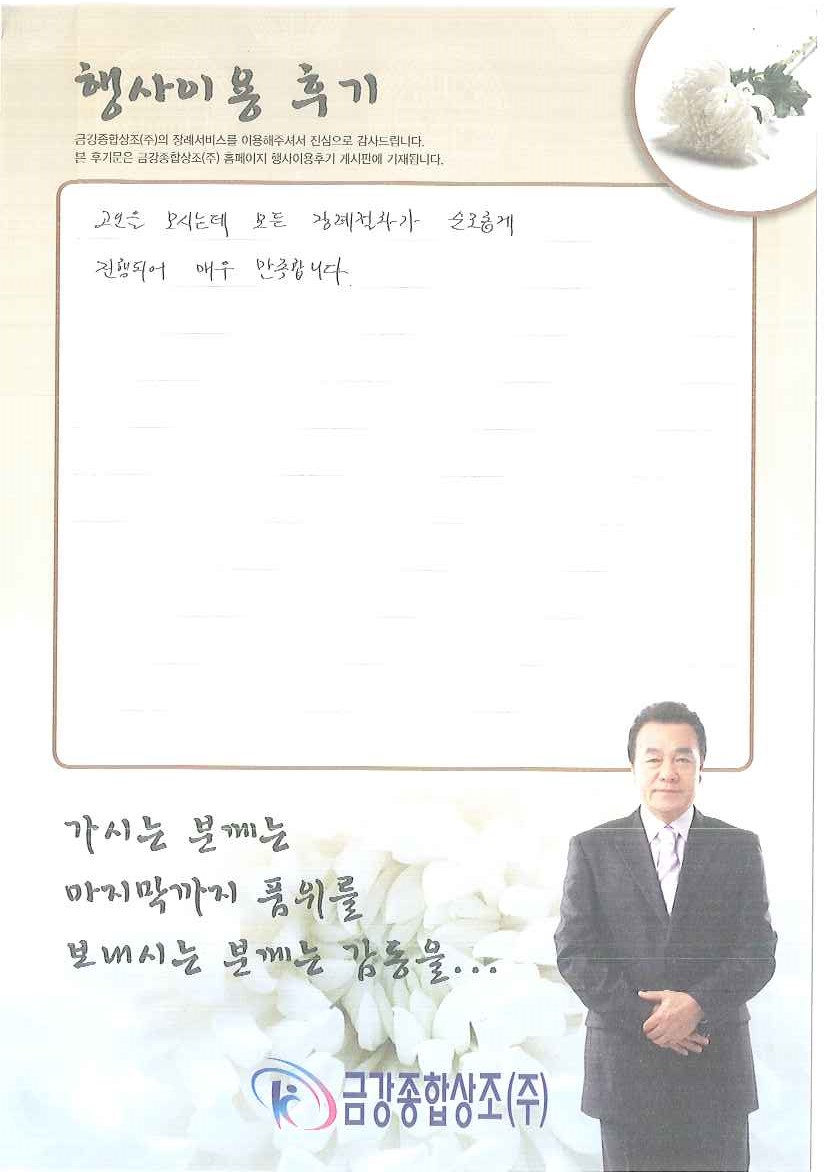 행사이용 후기
금강종합상조(주)의 장례서비스를 이용해주셔서 진심으로 감사드립니다.
본 후기문은 금강종합상조(주) 홈페이지 행사이용후기 게시판에 기재됩니다.
고인을 모시는데 모든 장례절차가 순조롭게
진행되어 매우 만족합니다.
가시는 분께는
마지막까지 품위를
보내시는 분께는 감동을...
금강종합상조(주)